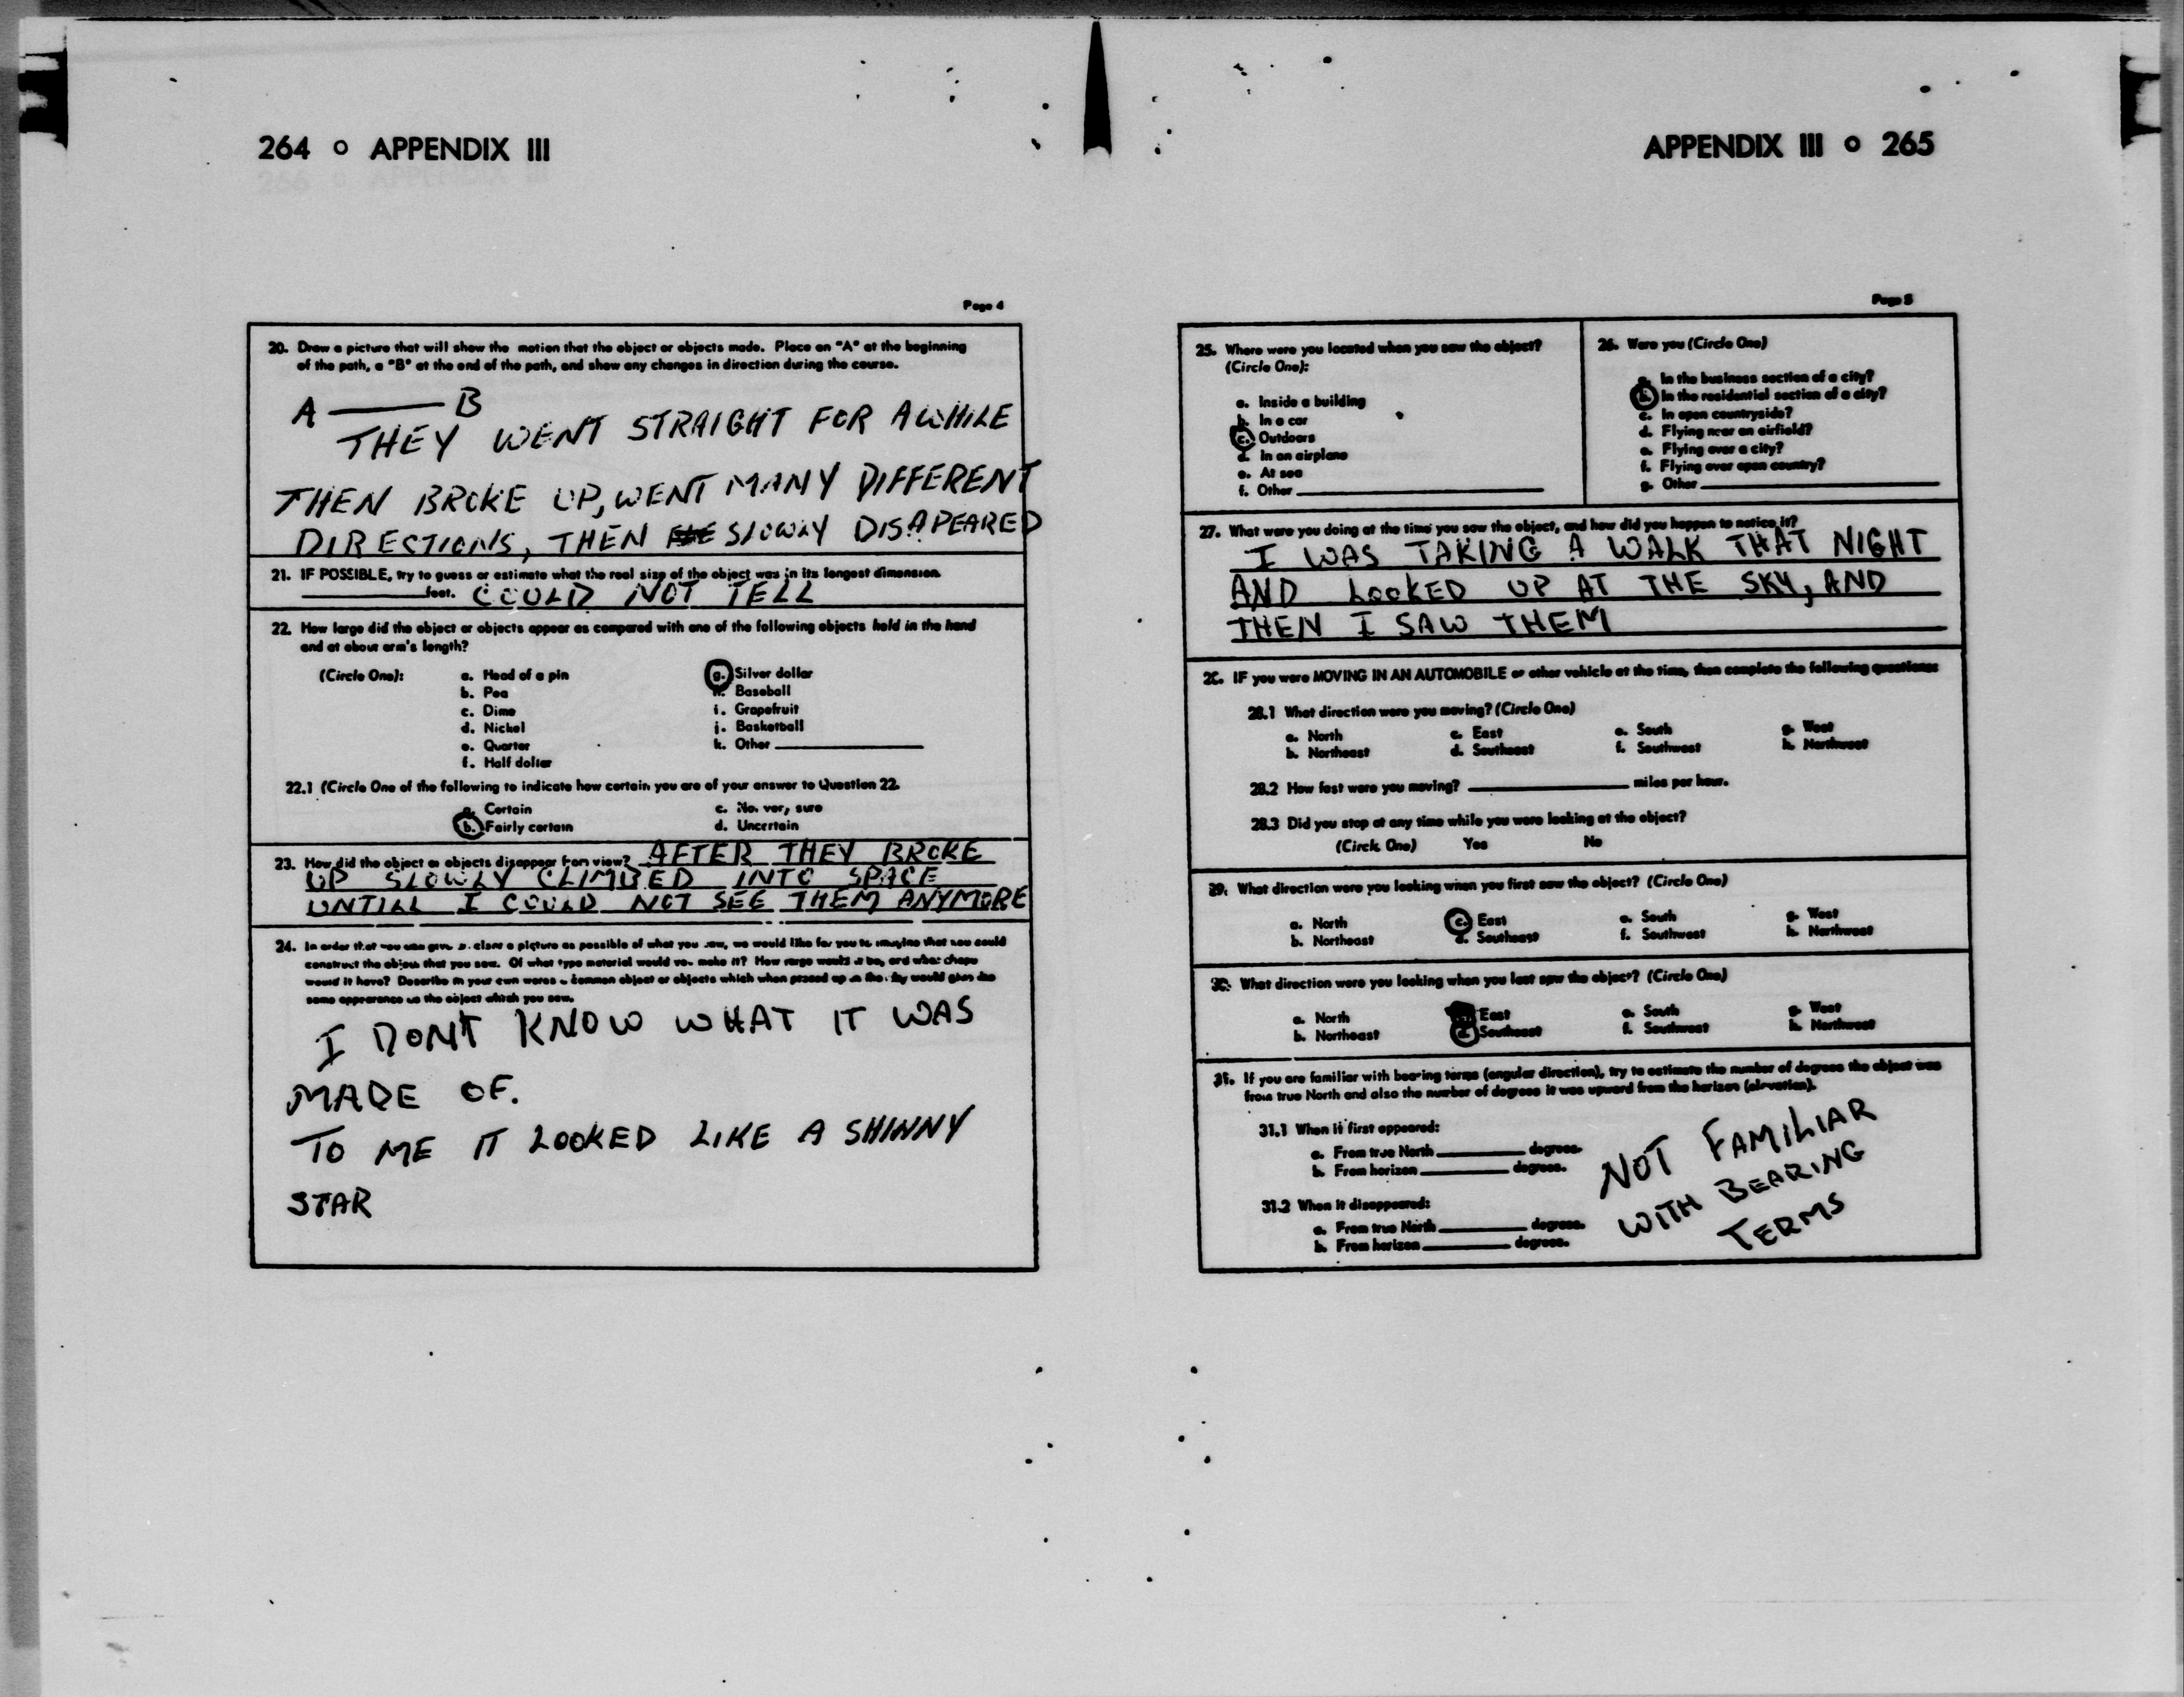 264 o APPENDIX III
Page 4
20. Draw a picture that will show the motion that the object or objects made. Place an "A" at the beginning
of the path, a "B" at the end of the path, and show any changes in direction during the course.
A B
THEY WENT STRAIGHT FOR AWHILE
THEN BROKE UP, WENT MANY DIFFERENT
DIRECTIONS, THEN SLOWLY DISAPEARED
21. IF POSSIBLE, try to guess or estimate what the real size of the object was in its longest dimension.
feet. COULD NOT TELL
22. How large did the object or objects appear as compared with one of the following objects held in the hand
and at about arm's length?
(Circle One): a. Head of a pin g. Silver dollar
b. Pea h. Baseball
c. Dime i. Grapefruit
d. Nickel j. Basketball
e. Quarter k. Other
f. Half dollar
22.1 (Circle One of the following to indicate how certain you are of your answer to Question 22.
a. Certain c. Not very sure
b. Fairly certain d. Uncertain
23. How did the object or objects disappear from view? AFTER THEY BROKE
UP SLOWLY CLIMBED INTO SPACE
UNTILL I COULD NOT SEE THEM ANYMORE
24. In order that you can give as clear a picture as possible of what you saw, we would like for you to imagine that you could
construct the object that you saw. Of what type material would you make it? How large would it be, and what shape
would it have? Describe in your own words a common object or objects which when placed up in the sky would give the
same appearance as the object which you saw.
I DON'T KNOW WHAT IT WAS
MADE OF.
TO ME IT LOOKED LIKE A SHINNY
STAR
APPENDIX III o 265
Page 5
25. Where were you located when you saw the object?
(Circle One):
a. Inside a building
b. In a car
c. Outdoors
d. In an airplane
e. At sea
f. Other
26. Were you (Circle One)
a. In the business section of a city?
b. In the residential section of a city?
c. In open countryside?
d. Flying near an airfield?
e. Flying over a city?
f. Flying over open country?
g. Other
27. What were you doing at the time you saw the object, and how did you happen to notice it?
I WAS TAKING A WALK THAT NIGHT
AND LOOKED UP AT THE SKY, AND
THEN I SAW THEM
28. IF you were MOVING IN AN AUTOMOBILE or other vehicle at the time, then complete the following questions:
28.1 What direction were you moving? (Circle One)
a. North c. East e. South g. West
b. Northeast d. Southeast f. Southwest h. Northwest
28.2 How fast were you moving? miles per hour.
28.3 Did you stop at any time while you were looking at the object?
(Circle One) Yes No
29. What direction were you looking when you first saw the object? (Circle One)
a. North c. East e. South g. West
b. Northeast d. Southeast f. Southwest h. Northwest
30. What direction were you looking when you last saw the object? (Circle One)
a. North East e. South g. West
b. Northeast d. Southeast f. Southwest h. Northwest
31. If you are familiar with bearing terms (angular direction), try to estimate the number of degrees the object was
from true North and also the number of degrees it was upward from the horizon (elevation).
31.1 When it first appeared:
a. From true North degrees.
b. From horizon degrees.
31.2 When it disappeared:
a. From true North degrees.
b. From horizon degrees.
NOT FAMILIAR
WITH BEARING
TERMS